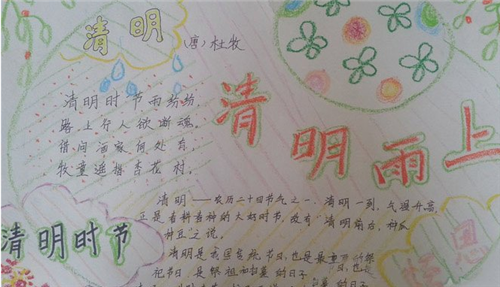 清明
(唐)杜牧
清明时节雨纷纷，
路上行人欲断魂。
借问酒家何处有，
牧童遥指杏花村。
清明雨上
清明——农历二十四节气之一，清明一到，气温升高，
正是春耕春种的大好时节，故有"清明前后，种瓜
种豆"之说。
清明时节
清明是我国传统节日，也是最重要的祭
祀节日，是祭祖和扫墓的日子
思